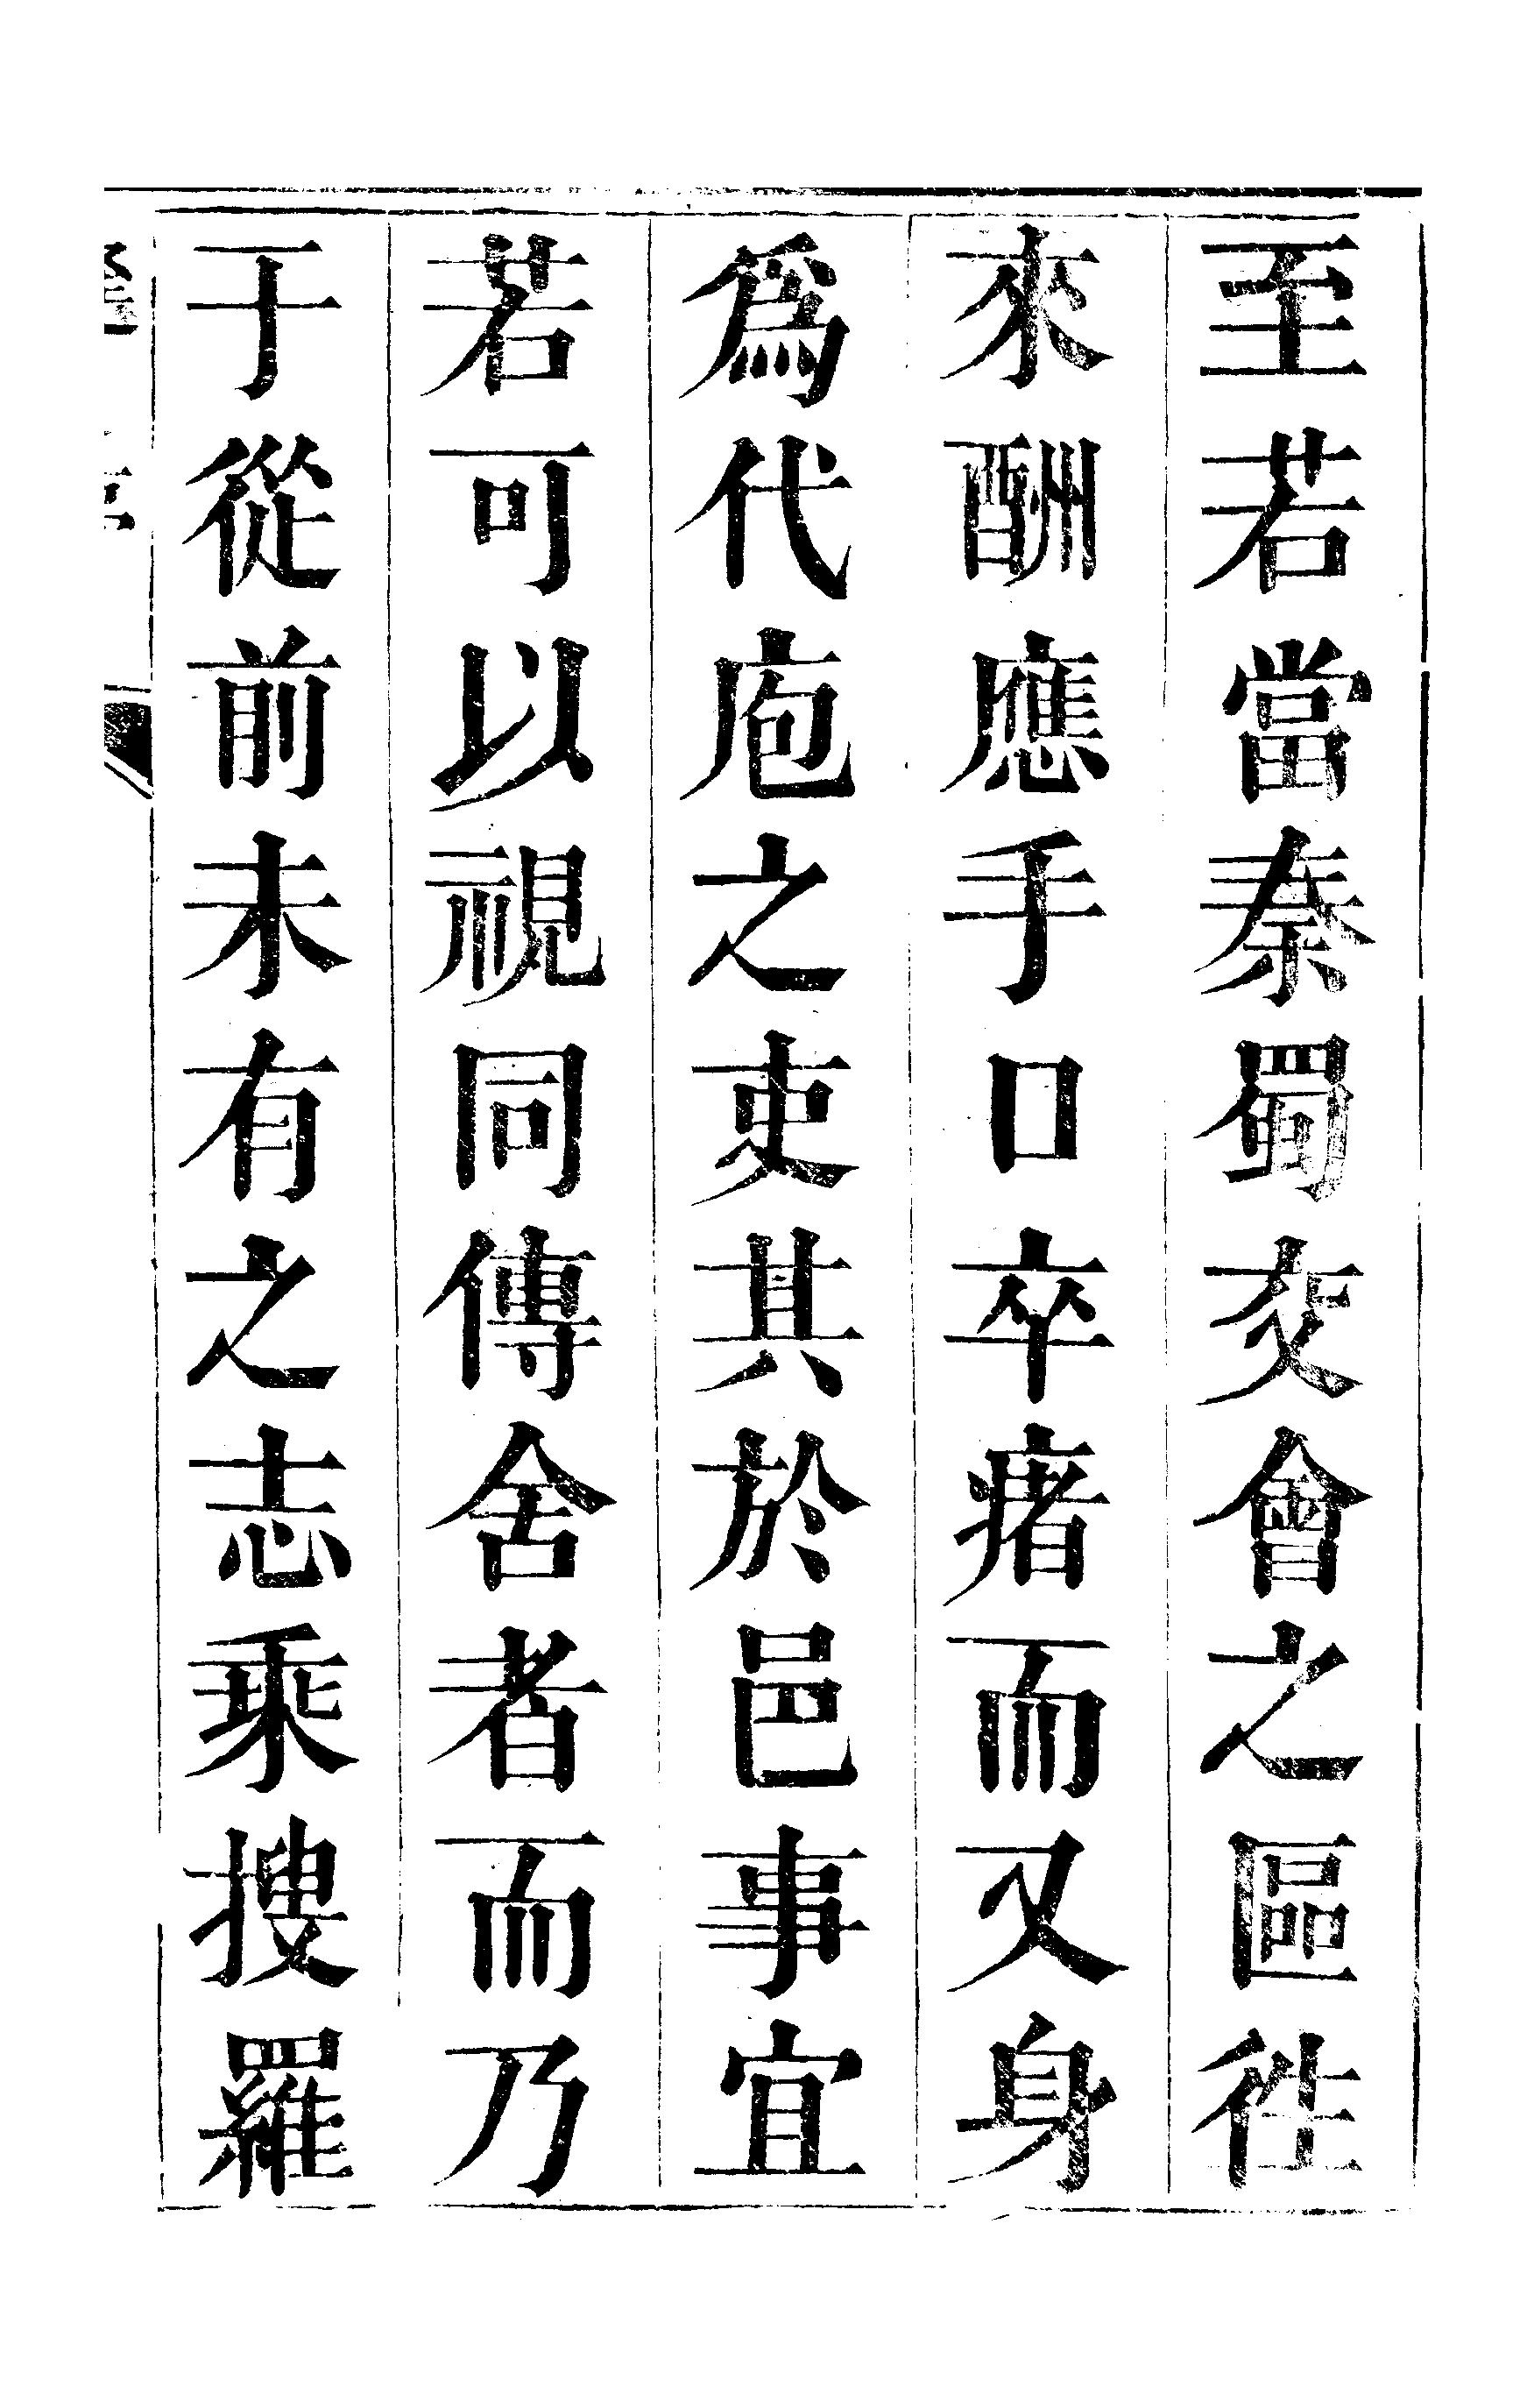 至若當秦蜀交會之區徃
來酬應手口卒瘏而又身
爲代庖之吏其於邑事宜
若可以視同傳舍者而乃
于從前未有之志乘搜羅